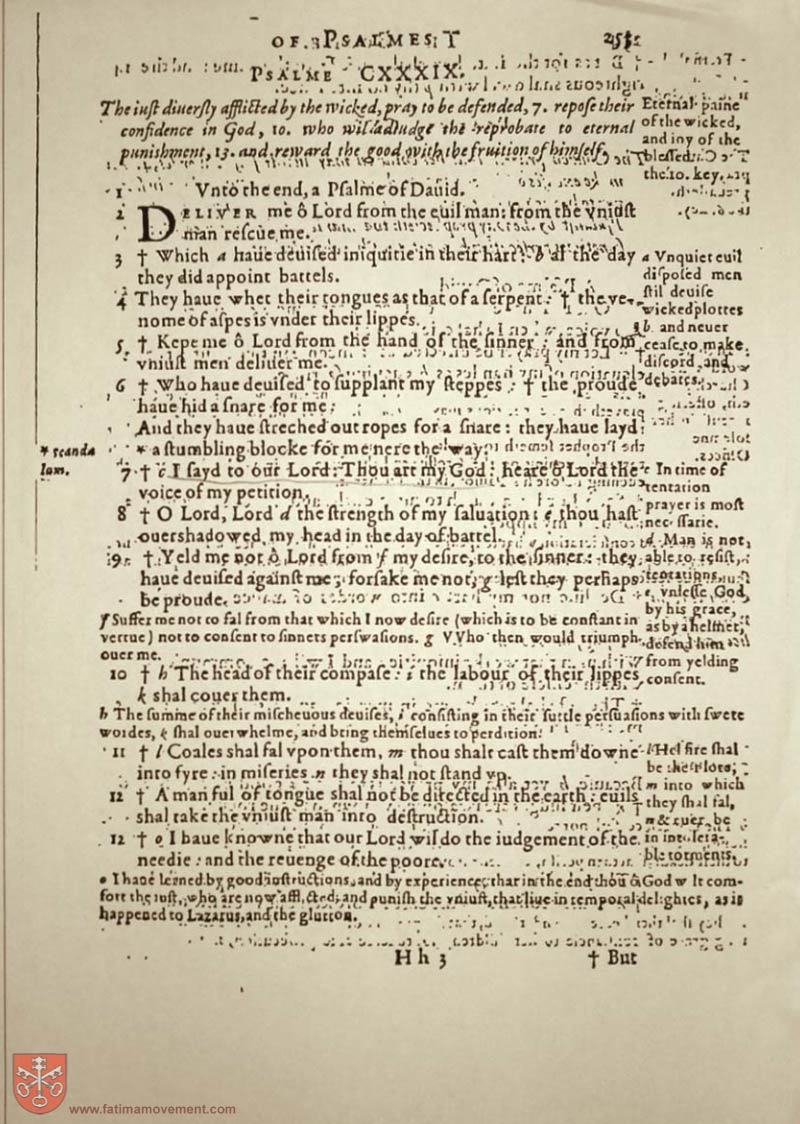 OF PSALMES.
PSALME CXXXIX.
The iust diuersly afflicted by the wicked, pray to be defended, 7. repose their
confidence in God, 10. who wil adiudge the reprobate to eternal
punishment, 13. and reward the good with the fruition of himself.
Eternal paine
of the wicked,
and ioy of the
blessed:
the 10. key.
1 Vnto the end, a Psalme of Dauid.
2 DELIVER me ô Lord from the euil man: from the vniust
man rescue me.
3 † Which a haue deuised iniquitie in their hart: b al the day
they did appoint battels.
a Vnquiet euil
disposed men
stil deuise
wicked plottes
b. and neuer
cease to make
discord, and
debates.
4 They haue whet their tongues as that of a serpent: † the ve-
nome of aspes is vnder their lippes.
5 † Kepe me ô Lord from the hand of the sinner: and from
vniust men deliuer me.
6 † Who haue deuised to supplant my steppes: † the proude
haue hid a snare for me:
And they haue streched out ropes for a snare: they haue layd
* a stumbling blocke for me nere the way.
* scanda
lum.
7 † c I sayd to our Lord: Thou art my God: heare ô Lord the
voice of my petition.
c In time of
tentation
prayer is most
necessarie.
8 † O Lord, Lord d the strength of my saluation: e thou hast
ouershadowed my head in the day of battel.
d Man is not
able to resist,
tentations
e vnlesse God
by his grace,
as by a helmet,
defend him
from yelding
consent.
9 † Yeld me not ô Lord from f my desire, to the sinner: they
haue deuised against me; forsake me not, g lest they perhaps
be proude.
f Suffer me not to fal from that which I now desire (which is to be constant in
vertue) not to consent to sinners perswasions. g VVho then would triumph
ouer me.
10 † h The head of their compase: i the labour of their lippes
k shal couer them.
h The summe of their mischeuous deuises, i consisting in their suttle persuasions with swete
wordes, k shal ouerwhelme, and bring themselues to perdition.
11 † l Coales shal fal vpon them, m thou shalt cast them downe
into fyre: in miseries n they shal not stand vp.
l Hel fire shal
be their lotte;
m into which
they shal fal,
n & euer be
in intolera-
ble torments.
12 † A man ful of tongue shal not be directed in the earth: euils
shal take the vniust man into destruction.
12 † o I haue knowne that our Lord wil do the iudgement of the
needie: and the reuenge of the poore.
o I haue lerned by good instructions, and by experience, that in the end thou ô God wilt com-
fort the iust, who are now afflicted, and punish the vniust, that liue in temporal delightes, as is
happened to Lazarus, and the glutton.
H h 3
† But
www.fatimamovement.com